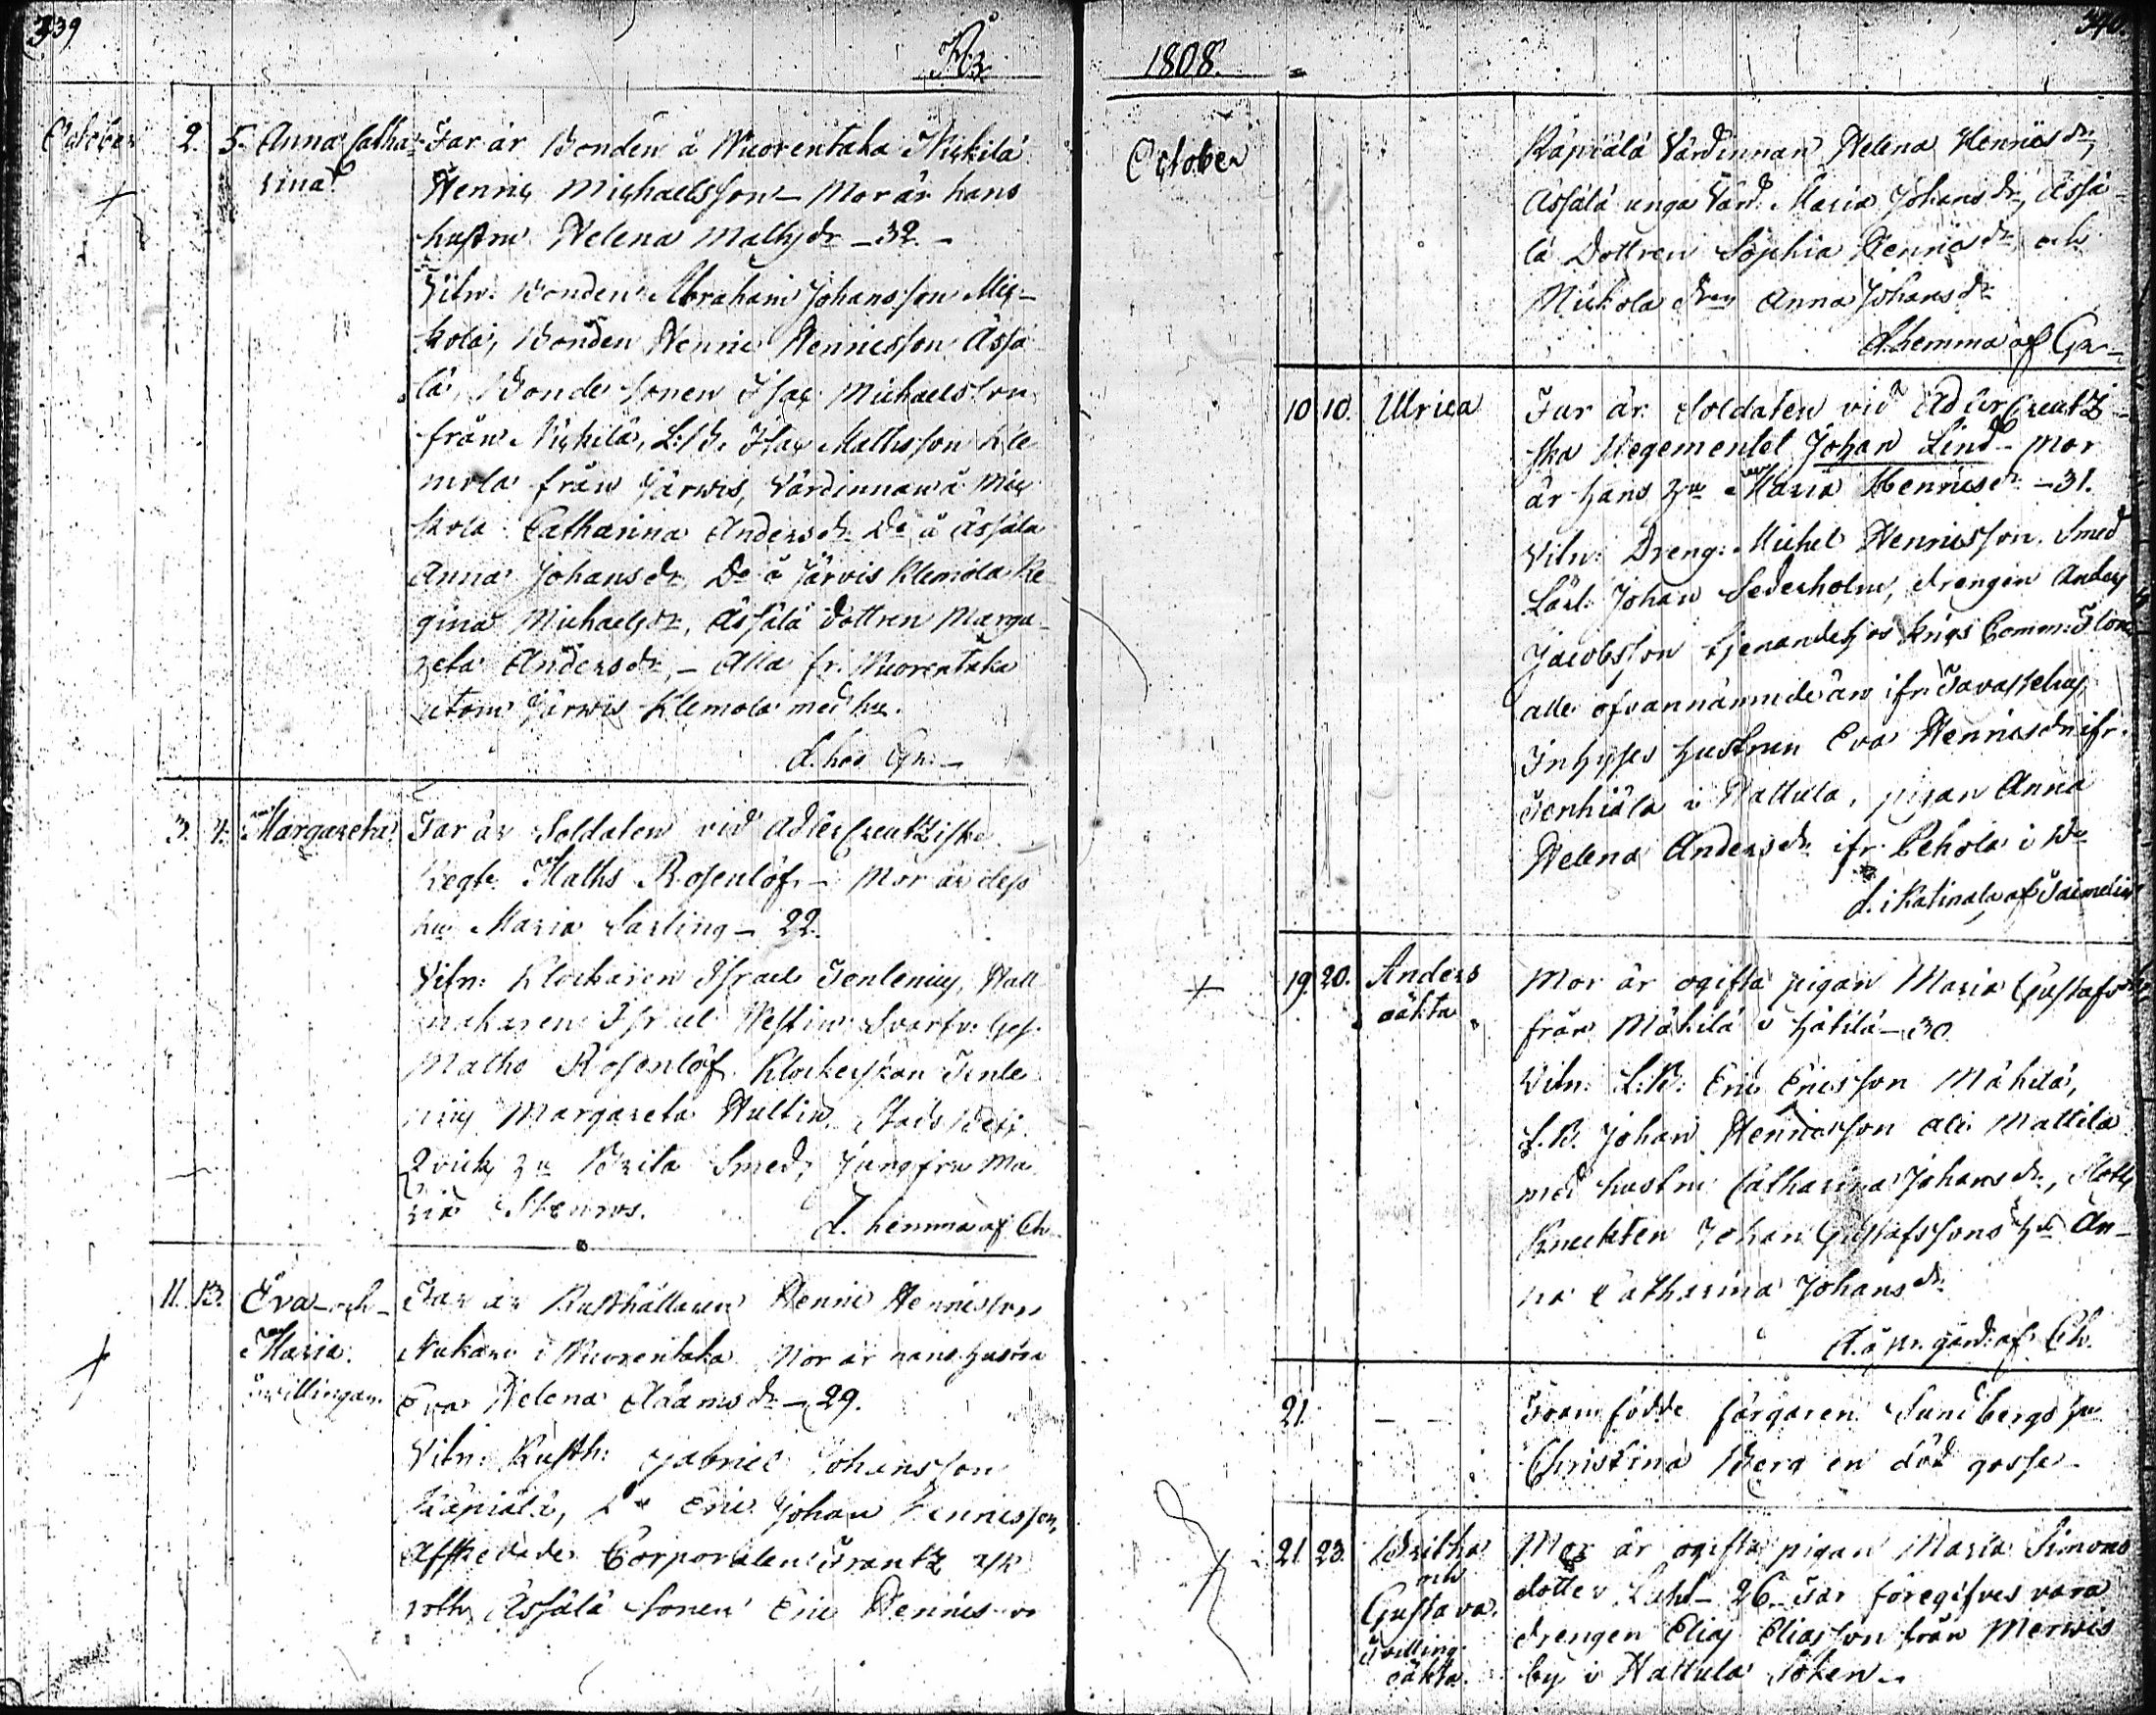 339
År
October 2. 5. Anna Catha- Far är Bonden å Wuorentaka Nickilä
rina. Henric Michaelsson – Mor är hans
hustru Helena Mattsdr – 32. –
Vitn: Bonden Abraham Johansson Mic-
kola, Bonden Henric Henricsson Äsjä
lä, Bonde sonen Isac Michaelsson
från Nickilä, L:B. Isac Mattsson Kle
mola från Järvis, Värdinnan å Mic
kola Catharina Andersdr. Do å Äsjälä
Anna Johansdr, Do å Järvis Klemola Re
gina Michaelsdr, Äsjälä dottren Marga-
reta Andersdr, – Alla fr. Wuorentaka
utom Järvis Klemola med hu.
d. hos Gn. –
3. 4. Margareta. Far är Soldaten vid AdlerCreutziske
Regte. Maths Rosenlöf – Mor är dess
hu. Maria Sarling – 22.
Vitn: Klockaren Israel Tenlenius, Hatt
makaren Israel Westin Svarfv. Ges.
Maths Rosenlöf. Klockerskan Tenle
nius Margareta Hultin, Stads Betj.
Qvick hu Brita Smed, Jungfru Ma
ria Stenros. d. hemma af Ch.
11. 13. Eva och Far är Rusthållaren Henric Henricsson
Maria. Nukari i Wuorentaka Mor är hans hustru
Tvillingar. Eva Helena Adamsdr – 29.
Vitn: Rusth: Gabriel Johansson
Räpiälä, Eric Johan Henricsson,
Afskedade Corporalen Frantz
Äsjälä Sonen Eric Henricsson
1808.
340.
October
Räpiälä Värdinnan Helena Henricsdr,
Äsjälä unga Värd. Maria Johansdr, Äsjä-
lä Dottren Sophia Henricsdr och
Mickola Anna Johansdr
d. hemma af Gn –
10. 10. Ulrica Far är Soldaten vid AdlerCreutz
ska Regementet Johan Lind – Mor
är hans hu Maria Henricsdr – 31.
Vitn: Dreng: Michel Henricsson. Smed
Lärl. Johan Sederholm, drengen Anders
Jacobsson tjenande hos Krigs Commis:
alle ofvannämnde äro ifr. Tavastehus,
Inhyses hustrun Eva Henricsdr ifr.
Tenhiälä i Hattula, pigan Anna
Helena Andersdr ifr. Lehola i Do
d. i Katinala af Saimelin
19. 20. Anders Mor är ogifta pigan Maria Gustafsdr
oäkta. från Mäkilä i Hätilä – 30.
Vitn: L:B: Eric Ericsson Mäkilä,
L.B. Johan Henricsson Ali Mattila
med hustru Catharina Johansdr, Slotts
Knickten Johan Gustafssons hu An-
na Catharina Johansdr
d. å pr. gård. af Ch.
21. – – Fram födde färgaren Sundbergs hu
Christina Berg en död gosse –
21. 23. Britha Mor är ogifta pigan Maria Simons
och dotter – 26. Far föregifves vara
Gustava. drengen Elias Eliasson från Merwis
Tvilling. by i Hattula Soken –
oäkta.